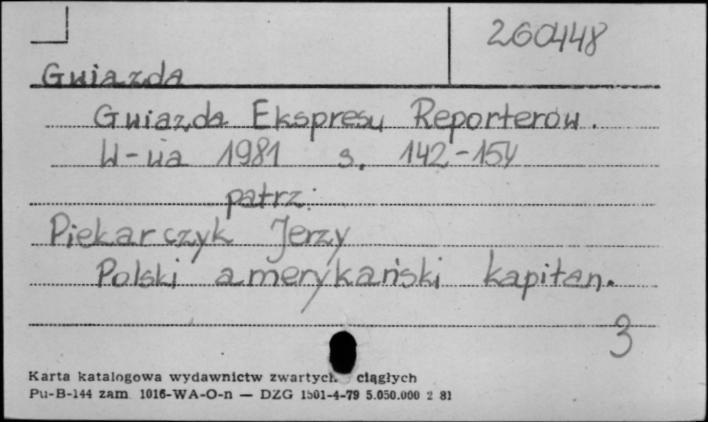 260448
Gwiazda
Gwiazda Ekspresu Reporterów.
W-wa 1981 s. 142-154
patrz:
Piekarczyk Jerzy
Polski amerykański kapitan.
3
Karta katalogowa wydawnictw zwartych ciągłych
Pu-B-144 zam. 1016-WA-O-n — DZG 1501-4-79 5.050.000 2 81